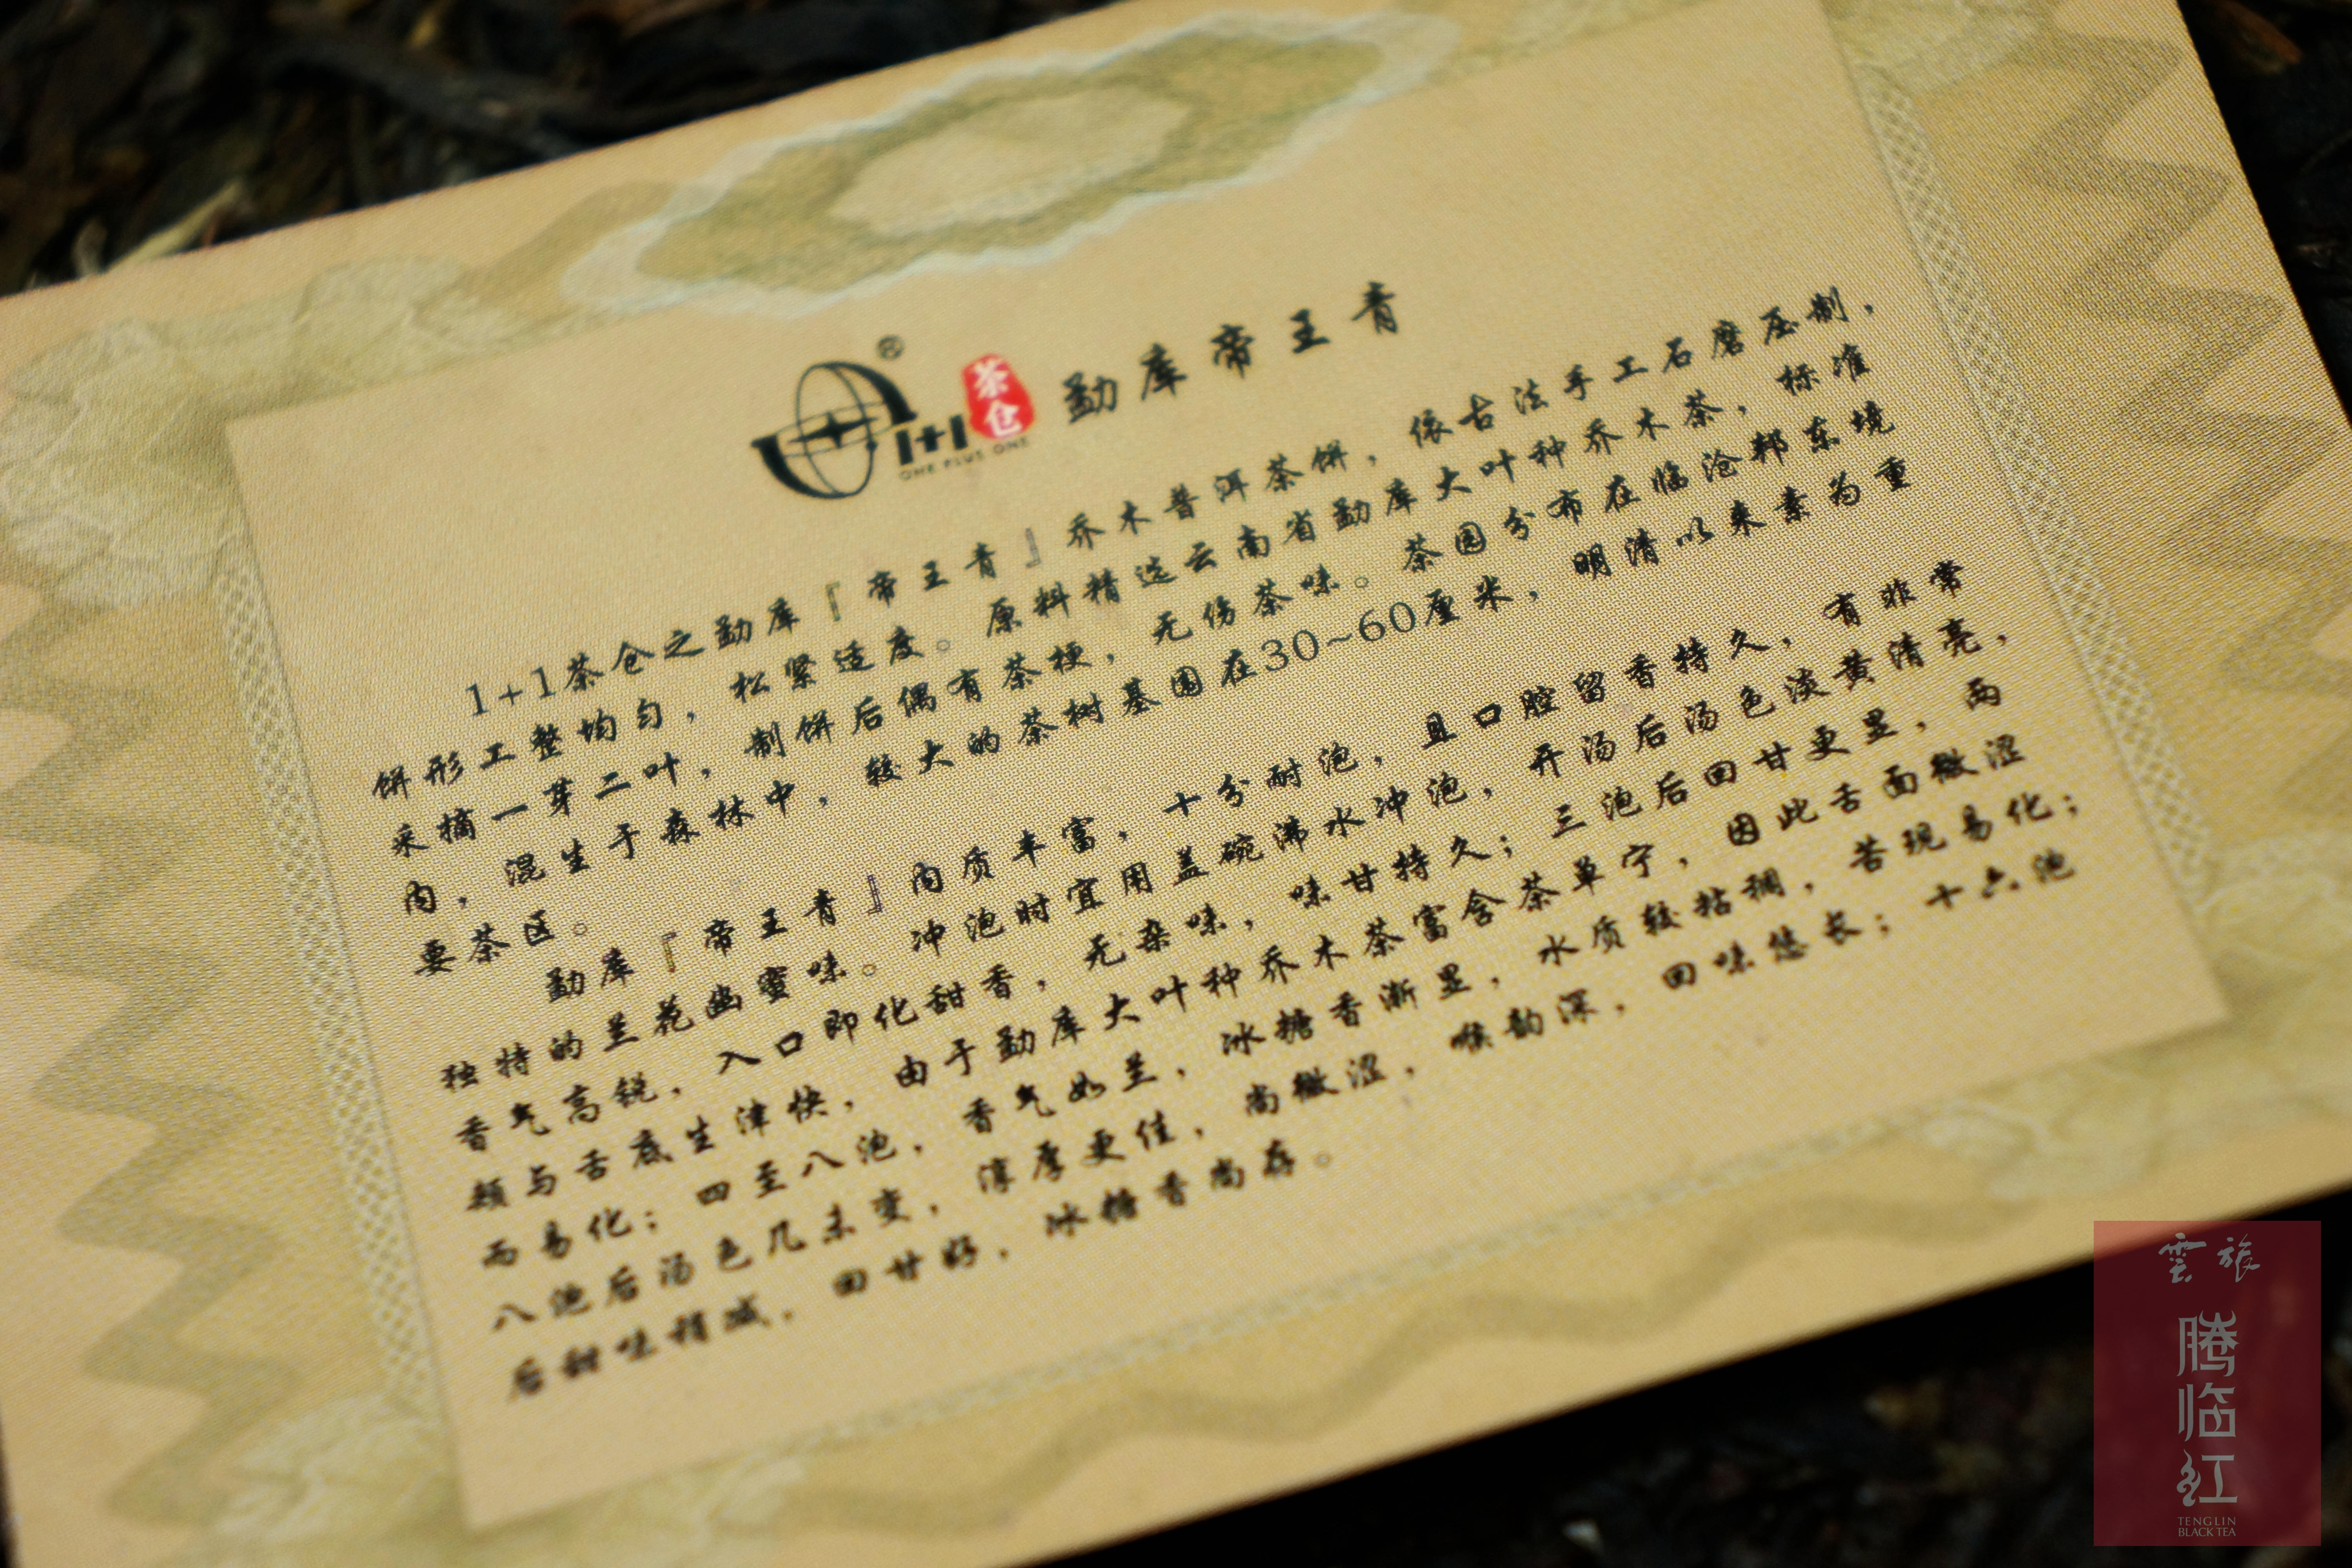 1+1
茶仓
ONE PLUS ONE
®
勐库帝王青
1+1茶仓之勐库『帝王青』乔木普洱茶饼，依古法手工石磨压制，
饼形工整均匀，松紧适度。原料精选云南省勐库大叶种乔木茶，标准
采摘一芽二叶，制饼后偶有茶梗，无伤茶味。茶园分布在临沧邦东境
内，混生于森林中，较大的茶树基围在30~60厘米，明清以来素为重
要茶区。
勐库『帝王青』内质丰富，十分耐泡，且口腔留香持久，有非常
独特的兰花幽蜜味。冲泡时宜用盖碗沸水冲泡，开汤后汤色淡黄清亮，
香气高锐，入口即化甜香，无杂味，味甘持久；三泡后回甘更显，两
颊与舌底生津快，由于勐库大叶种乔木茶富含茶单宁，因此舌面微涩
而易化；四至八泡，香气如兰，冰糖香渐显，水质较粘稠，苦现易化；
八泡后汤色几未变，淳厚更佳，尚微涩，喉韵深，回味悠长；十六泡
后甜味稍减，回甘好，冰糖香尚存。
雲旅
腾临红
TENGLIN
BLACK TEA